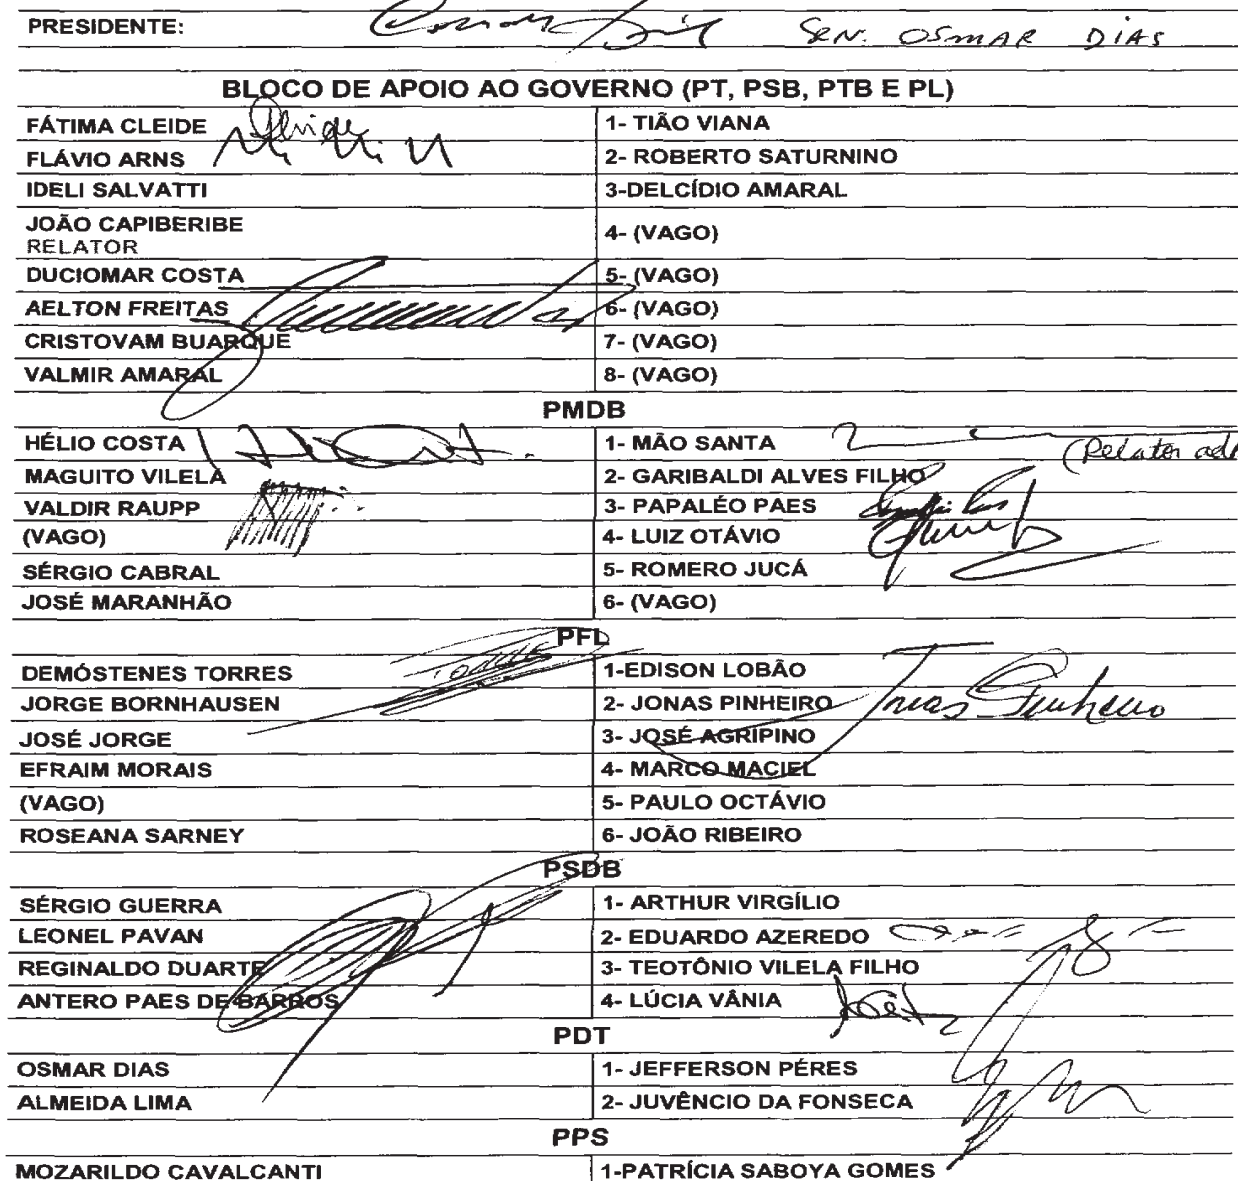 PRESIDENTE: SEN. OSMAR DIAS
BLOCO DE APOIO AO GOVERNO (PT, PSB, PTB E PL)
FÁTIMA CLEIDE 1- TIÃO VIANA
FLÁVIO ARNS 2- ROBERTO SATURNINO
IDELI SALVATTI 3-DELCÍDIO AMARAL
JOÃO CAPIBERIBE
RELATOR 4- (VAGO)
DUCIOMAR COSTA 5- (VAGO)
AELTON FREITAS 6- (VAGO)
CRISTOVAM BUARQUE 7- (VAGO)
VALMIR AMARAL 8- (VAGO)
PMDB
HÉLIO COSTA 1- MÃO SANTA (Relator
MAGUITO VILELA 2- GARIBALDI ALVES FILHO
VALDIR RAUPP 3- PAPALÉO PAES
(VAGO) 4- LUIZ OTÁVIO
SÉRGIO CABRAL 5- ROMERO JUCÁ
JOSÉ MARANHÃO 6- (VAGO)
PFL
DEMÓSTENES TORRES 1-EDISON LOBÃO
JORGE BORNHAUSEN 2- JONAS PINHEIRO Jonas Pinheiro
JOSÉ JORGE 3- JOSÉ AGRIPINO
EFRAIM MORAIS 4- MARCO MACIEL
(VAGO) 5- PAULO OCTÁVIO
ROSEANA SARNEY 6- JOÃO RIBEIRO
PSDB
SÉRGIO GUERRA 1- ARTHUR VIRGÍLIO
LEONEL PAVAN 2- EDUARDO AZEREDO
REGINALDO DUARTE 3- TEOTÔNIO VILELA FILHO
ANTERO PAES DE BARROS 4- LÚCIA VÂNIA
PDT
OSMAR DIAS 1- JEFFERSON PÉRES
ALMEIDA LIMA 2- JUVÊNCIO DA FONSECA
PPS
MOZARILDO CAVALCANTI 1-PATRÍCIA SABOYA GOMES